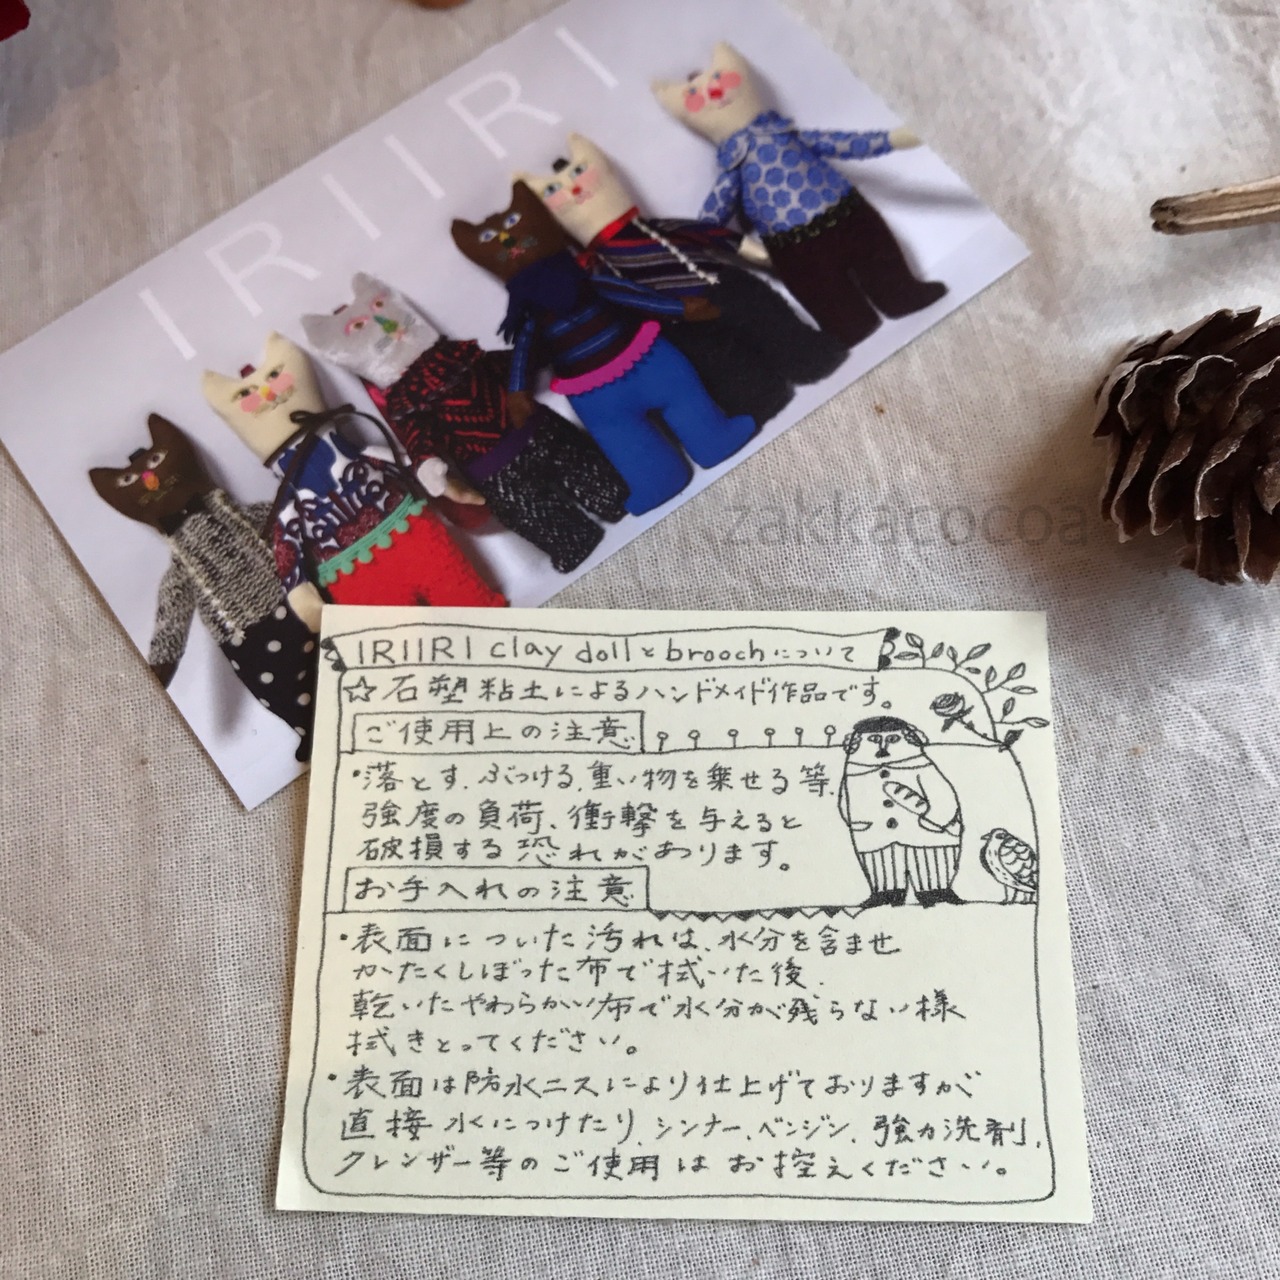 IRIIRI
zakkacocoa
IRIIRI clay dollとbroochについて
☆石塑粘土によるハンドメイド作品です。
ご使用上の注意
・落とす、ぶつける、重い物を乗せる等、
強度の負荷、衝撃を与えると
破損する恐れがあります。
お手入れの注意
・表面についた汚れは、水分を含ませ
かたくしぼった布で拭いた後、
乾いたやわらかい布で水分が残らない様
拭きとってください。
・表面は防水ニスにより仕上げておりますが
直接水につけたり、シンナー、ベンジン、強力洗剤、
クレンザー等のご使用はお控えください。